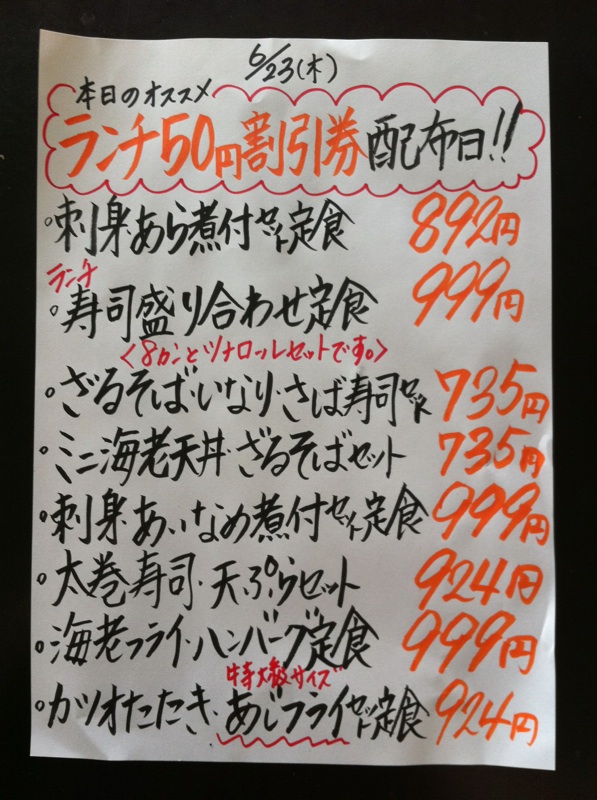 6/23(木)
本日のオススメ
ランチ50円割引券配布日!!
。刺身・あら煮付セット定食 892円
ランチ
。寿司盛り合わせ定食 999円
<8カンとツナロールセットです。>
。ざるそば・いなり・さば寿司セット 735円
。ミニ海老天丼・ざるそばセット 735円
。刺身・あいなめ煮付セット定食 999円
。太巻寿司・天ぷらセット 924円
。海老フライ・ハンバーグ定食 999円
特大級サイズ
。カツオたたき・あじフライセット定食 924円